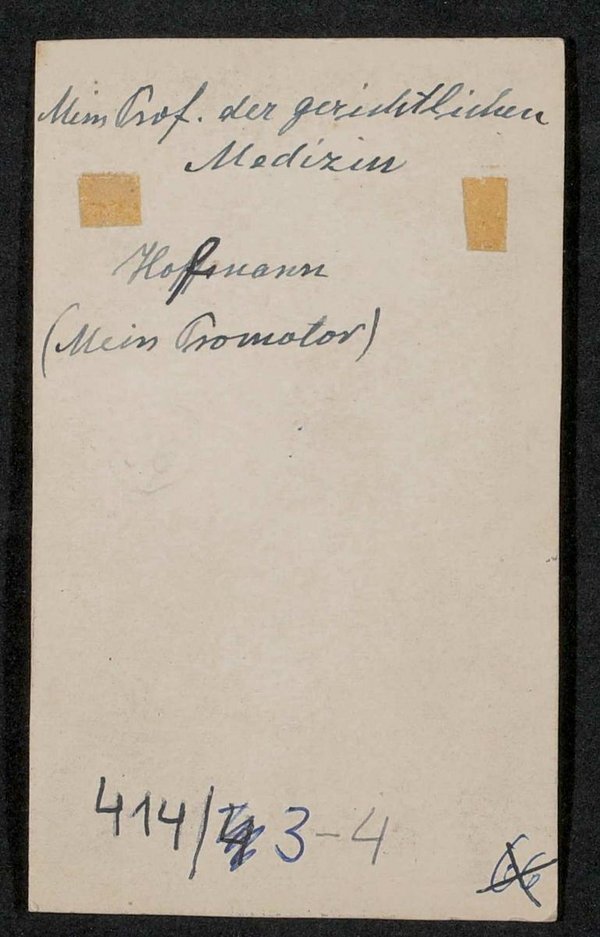 Mein Prof. der gerichtlichen
Medizin
Hoffmann
(Mein Promotor)
414/ 3-4